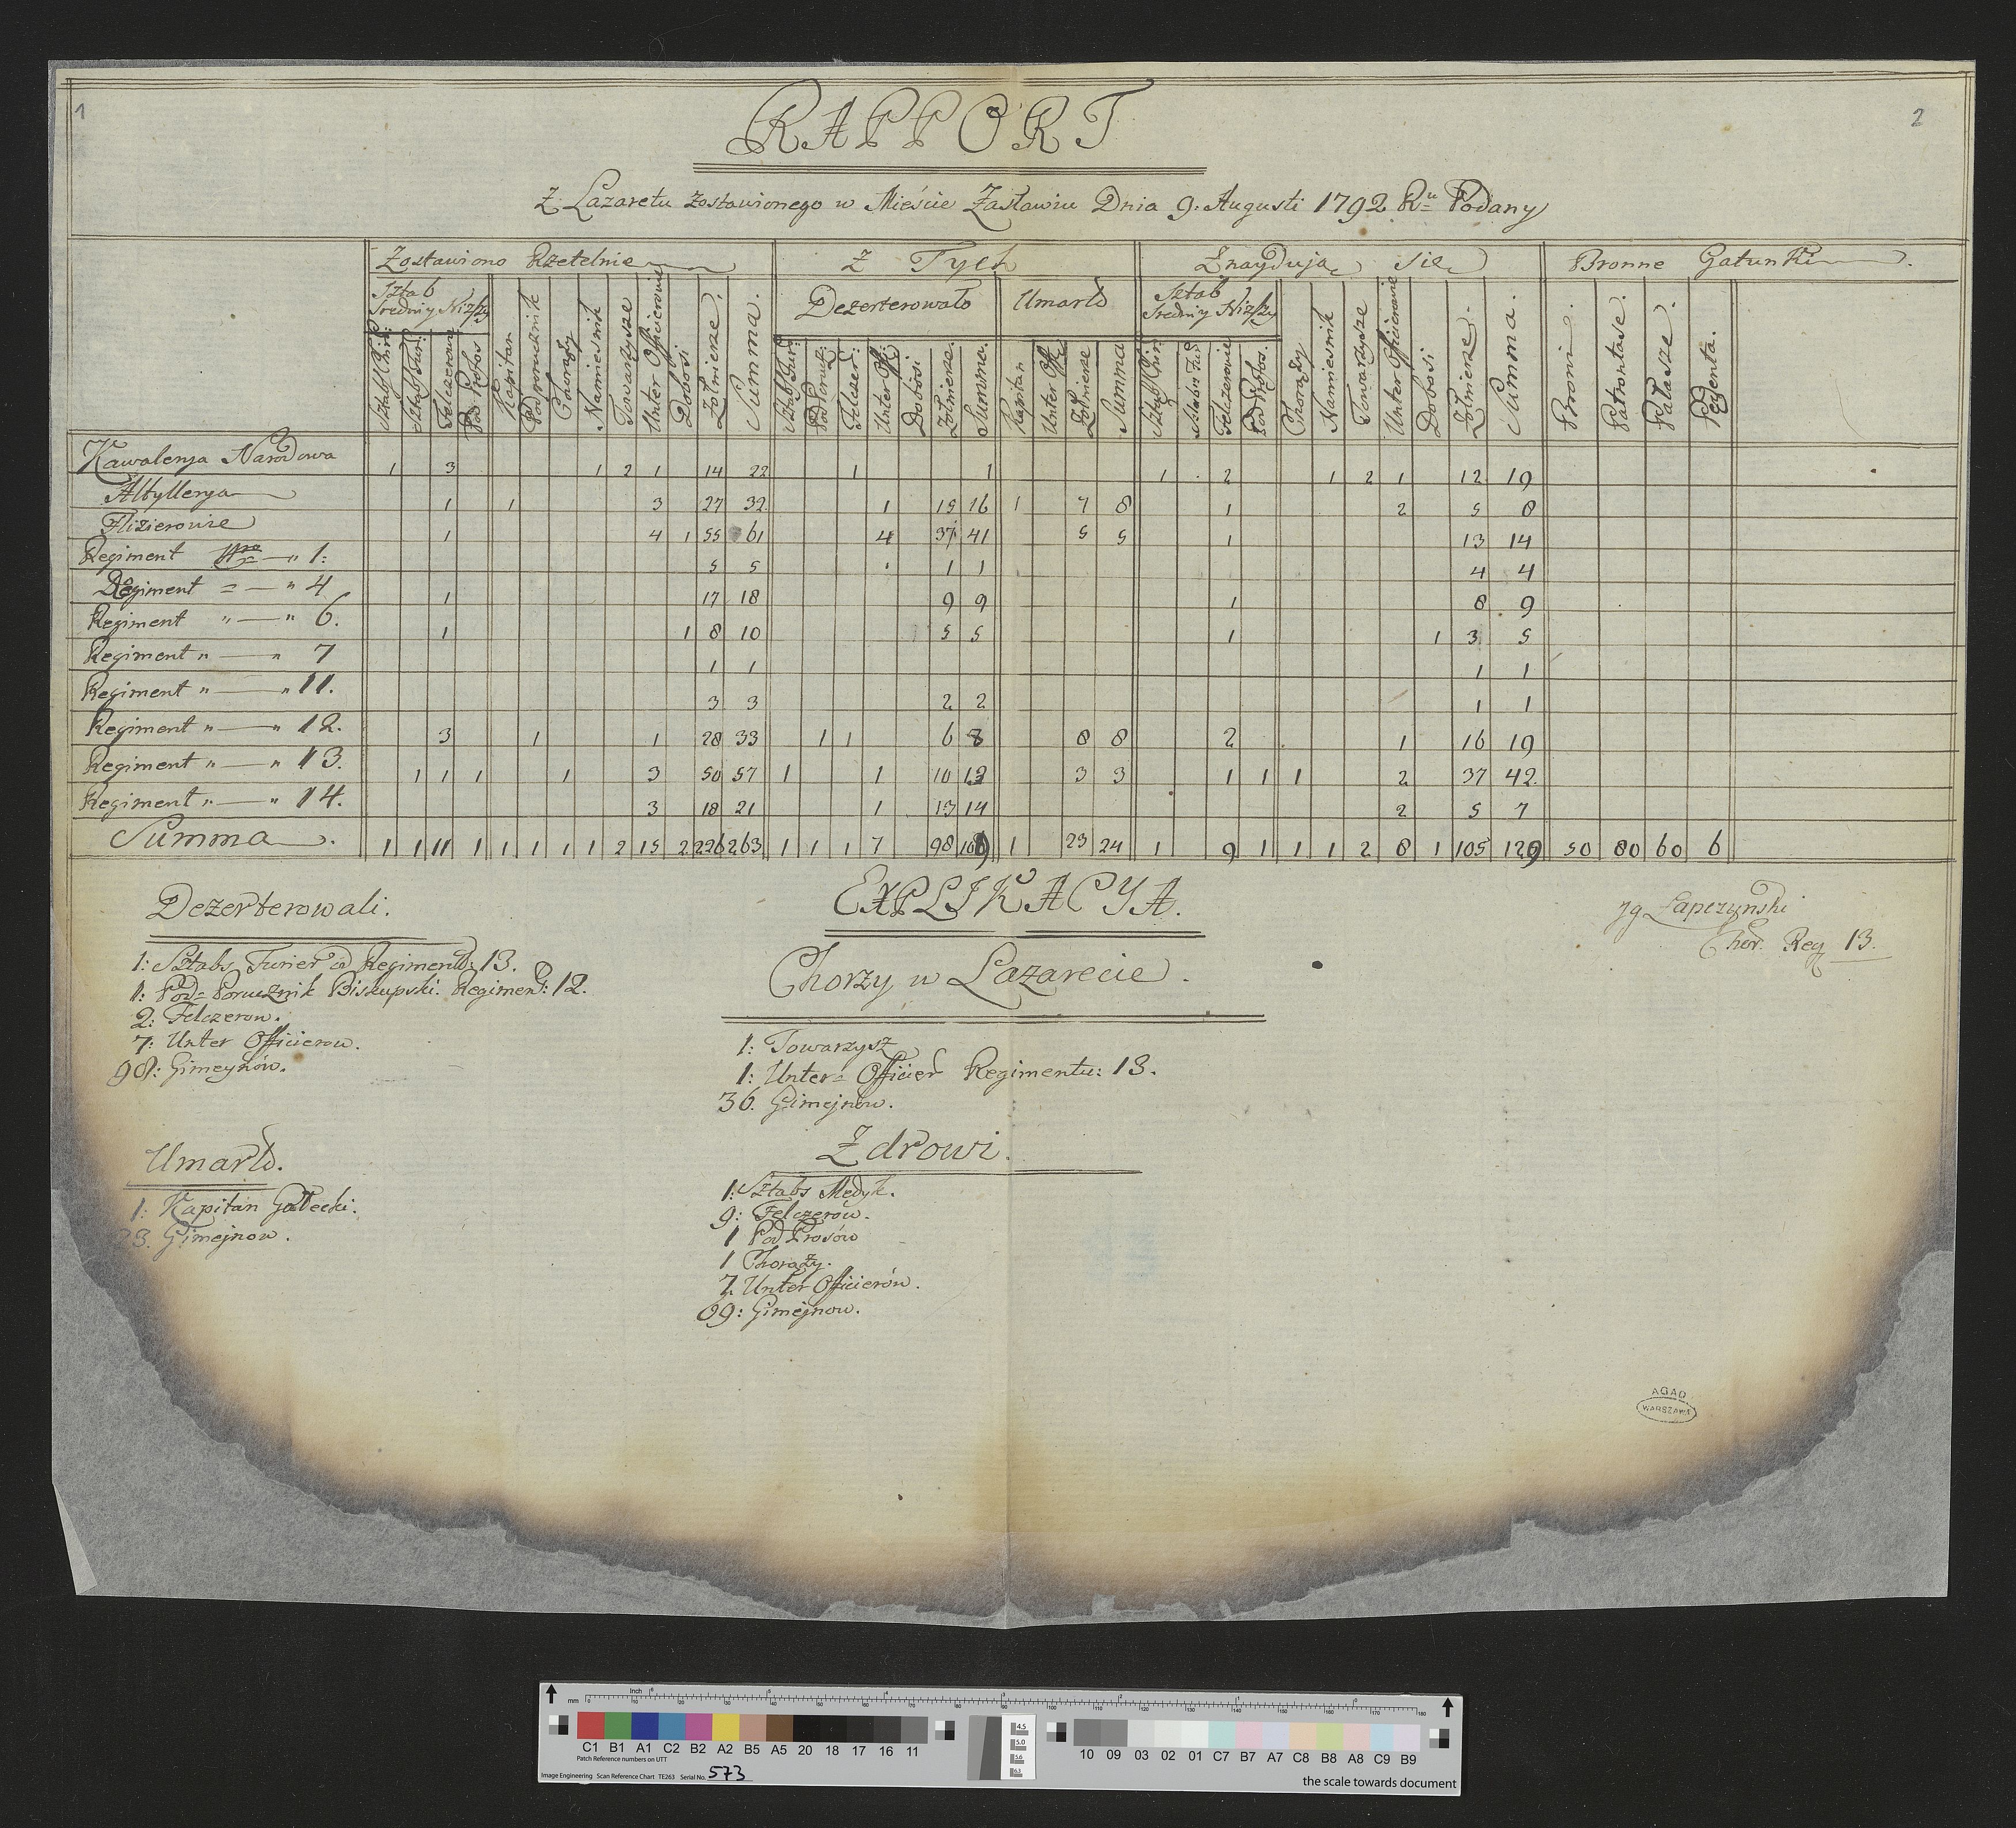 1
2
RAPPORT
Z Lazaretu zostawionego w Mieście Zasławiu Dnia 9. Augusti 1792 Ru Podany
Zostawiono Rzetelnie Z Tych Znaydują się Bronne Gatunki.
Sztab Sredniy Niższy Dezerterowało Umarło Sztab Sredniy Niższy
Sztab Chir: Sztab Fur: Felczerowie Pod Profos Kapitan Podporucznik Chorąży Namiesnik Towarzysze Unter Officierowie Dobosi Zołnierze. Summa. Sztab Fur: Pod Porucz: Felcer: Unter Off: Dobosi Zołnierze. Summa. Kapitan Unter Off: Zołnierze Summa Sztab Chir: Sztabs Fur Felczerowie Pod Profos. Chorąży Namiesnik Towarzysze Unter Officierowie Dobosi Zołnierze. Summa. Broni. Patrontasze. Pałasze. Pegenta.
Kawalerya Narodowa 1 3 1 2 1 14 22 1 1 1 2 1 2 1 12 19
Altyllerya 1 1 3 27 32 1 15 16 1 7 8 1 2 5 8
Flizierowie 1 4 1 55 61 4 37 41 5 5 1 13 14
Regiment Nro " 1: 5 5 1 1 4 4
Regiment = — " 4 1 17 18 9 9 1 8 9
Regiment " — " 6. 1 1 8 10 5 5 1 1 3 5
Regiment " — " 7 1 1 1 1
Regiment " — " 11. 3 3 2 2 1 1
Regiment " — " 12. 3 1 1 28 33 1 1 6 8 8 8 2 1 16 19
Regiment " — " 13. 1 1 1 1 3 50 57 1 1 10 12 3 3 1 1 1 2 37 42
Regiment " — " 14. 3 18 21 1 13 14 2 5 7
Summa. 1 1 11 1 1 1 1 1 2 15 2 226 263 1 1 1 7 98 1 23 24 1 9 1 1 1 2 8 1 105 129 50 80 60 6
Dezerterowali.
1: Sztabs Furier Regiment: 13.
1: Pod= Porucznik Biskupski. Regiment: 12.
2: Felczerow.
7: Unter Officierow.
98: Gimeynów.
Umarło.
1: Kapitan Gałecki.
23. Gimejnow.
EXPLIKACYA.
Chorzy w Lazarecie.
1: Towarzysz
1: Unter= Officier Regimentu: 13.
36. Gimejnow.
Zdrowi.
1: Sztabs Medyk.
9: Felczerów.
1 Pod Prosów
1 Chorąży.
7. Unter Officierów.
69: Gimejnow.
Jg Łapczyński
Chor. Reg 13.
AGAD
WARSZAWA
mm Inch
C1 B1 A1 C2 B2 A2 B5 A5 20 18 17 16 11 10 09 03 02 01 C7 B7 A7 C8 B8 A8 C9 B9
Patch Reference numbers on UTT
Image Engineering Scan Reference Chart TE263 Serial No. 573
4.5
5.0
5.6
6.3
the scale towards document